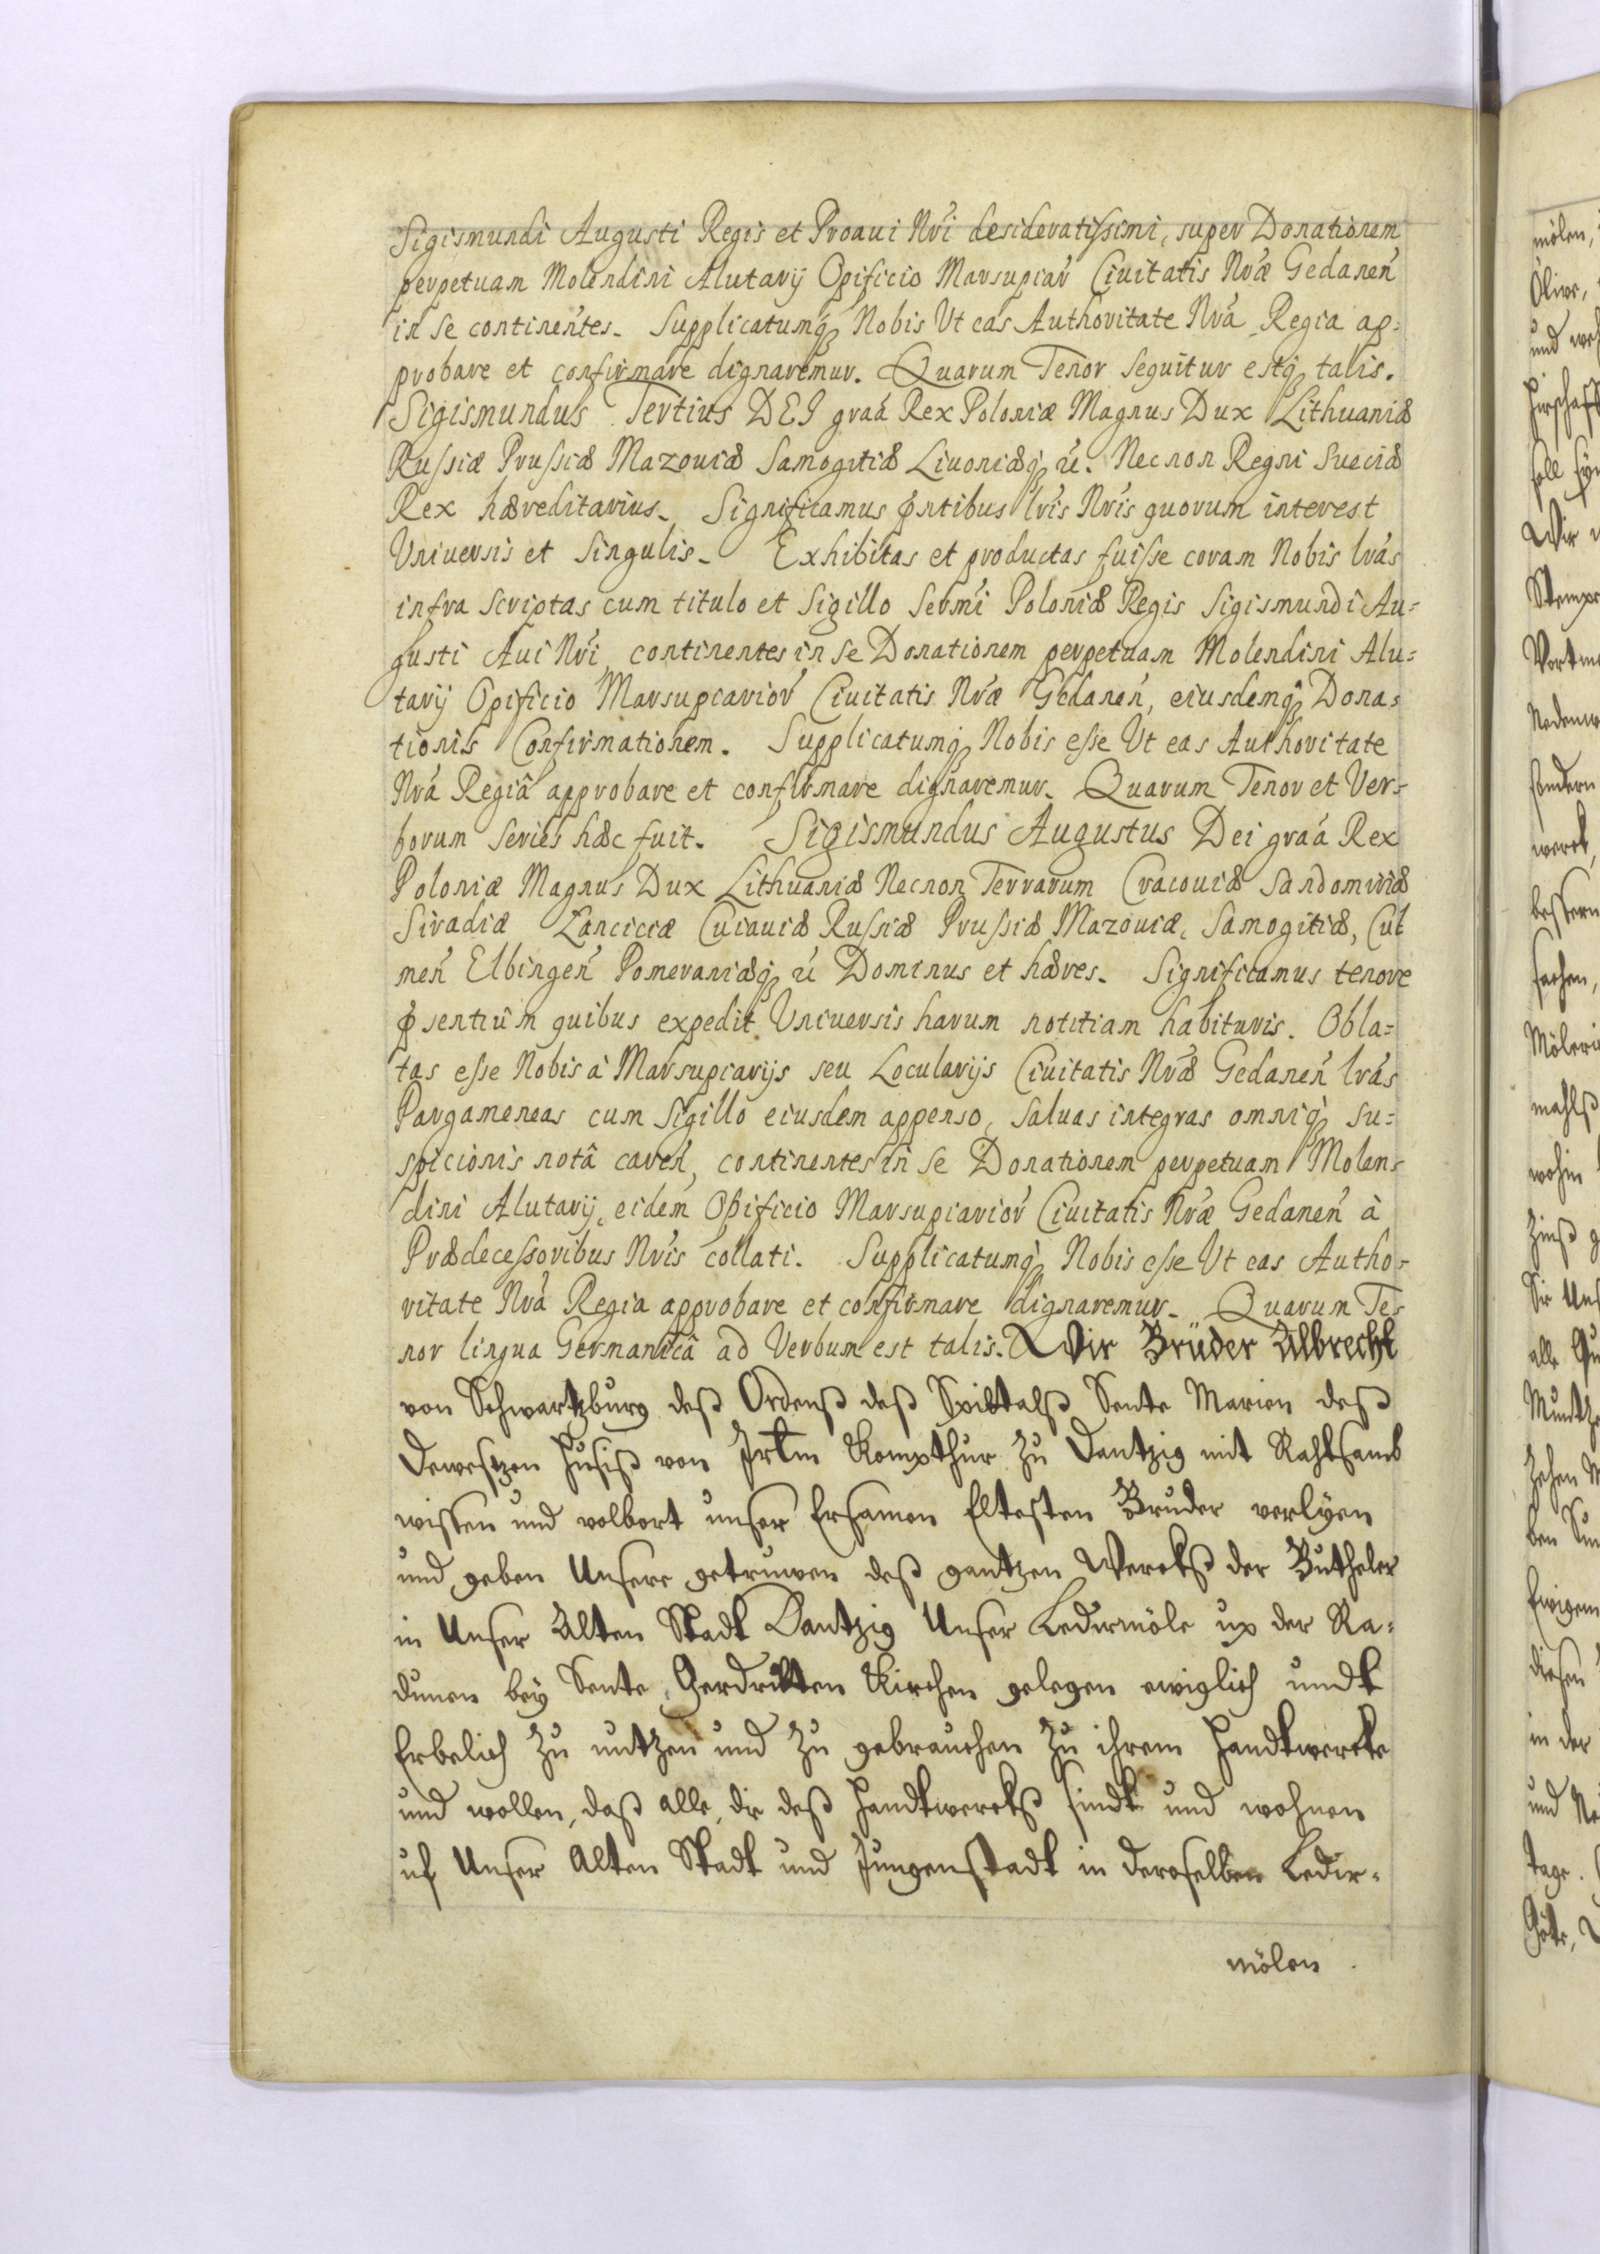 Sigismundi Augusti Regis et Proaui Nři desideratissimi, super Donationem
perpetuam Molendini Alutarij Opificio Marsupiař Ciuitatis Nřæ Gedaneń
in se continentes. Supplicatumq₃ Nobis Vt eas Authoritate Nřa Regia ap-
probare et confirmare dignaremur. Quarum Tenor sequitur estq₃ talis.
Sigismundus Tertius DEI graá Rex Poloniæ Magnus Dux Lithuaniæ
Russiæ Prussiæ Mazouiæ Samogitiæ Liuoniæq₃ ű. Necnon Regni Sueciæ
Rex hæreditarius. Significamus pntibus lřis Nřis quorum interest
Vniuersis et singulis. Exhibitas et productas fuisse coram Nobis lřas
infra scriptas cum titulo et Sigillo Sermi Poloniæ Regis Sigismundi Au=
gusti Aui Nři continentes in se Donationem perpetuam Molendini Alu=
tarij Opificio Marsupiarioř Ciuitatis Nřæ Gedaneń, eiusdemq₃ Dona=
tionis Confirmationem. Supplicatumq₃ Nobis esse Vt eas Authoritate
Nřa Regiâ approbare et confirmare dignaremur. Quarum Tenor et Ver=
borum series hæc fuit. Sigismundus Augustus Dei graá Rex
Poloniæ Magnus Dux Lithuaniæ Necnon Terrarum Cracouiæ Sandomiriæ
Siradiæ Lanciciæ Cuiauiæ Russiæ Prussiæ Mazouiæ, Samogitiæ, Cul
meń Elbingeń Pomeraniæq₃ ű Dominus et hæres. Significamus tenore
psentium quibus expedit Vniuersis harum notitiam habituris. Obla=
tas esse Nobis à Marsupiarijs seu Locularijs Ciuitatis Nřæ Gedaneń lřas
Pargameneas cum Sigillo eiusdem appenso, saluas integras omniq₃ su=
spicionis notâ careń, continentes in se Donationem perpetuam Molen=
dini Alutarij, eidem Opificio Marsupiarioř Ciuitatis Nřæ Gedaneń à
Prædecessoribus Nřis collati. Supplicatumq₃ Nobis esse Vt eas Autho=
ritate Nřa Regia approbare et confirmare dignaremur. Quarum Te=
nor lingua Germanicâ ad Verbum est talis. Wir Brüder Albrecht
von Schwartzburg deß Ordenß deß Spittalß Sente Marien deß
Dewestzen Husiß von Jrłm Kompthur zu Dantzig mit Rahtsamb
wissen und volbort unser Ersamen Eltesten Bruder verlyen
und geben Unsere getruwen deß gantzen Wercks der Butheler
in Unser Alten Stadt Dantzig Unser Ledirmöle up der Ra=
dunen bey Sente Gerdrutten Kirchen gelegen ewiglich undt
Erbelich zu nutzen und zu gebrauchen zu ihrem Handtwercke
und wollen, daß alle, die deß Handtwercks sindt und wohnen
uf Unser Alten Stadt und Jungenstadt in deroselben Ledir=
mölen